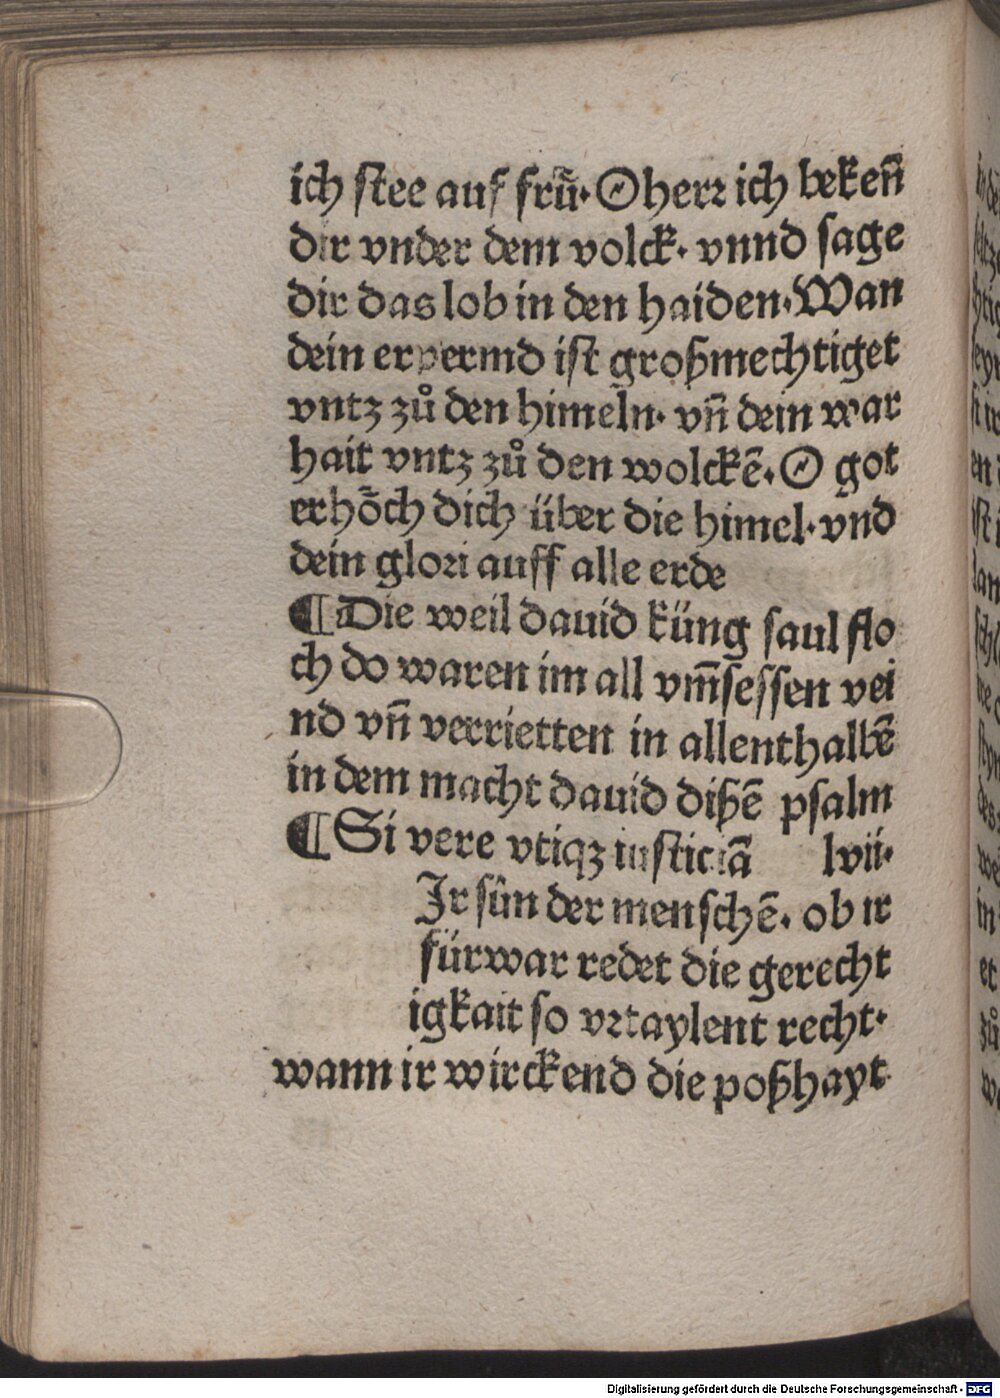 ich stee auf frū· O herr ich bekeñ
dir vnder dem volck· vnnd sage
dir das lob in den haiden· Wan
dein erpermd ist großmechtiget
vntz zů den himeln· vñ dein war
hait vntz zů den wolckē· O got
erhöch dich über die himel· vnd
dein glori auff alle erde
¶ Die weil dauid küng saul flo
ch do waren im all vm̄sessen vei
nd vñ verrietten in allenthalbē
in dem macht dauid dißē psalm
¶ Si vere vtiqz iusticiā lvii·
Ir sün der menschē· ob ir
fürwar redet die gerecht
igkait so vrtaylent recht·
wann ir wirckend die poßhayt
Digitalisierung gefördert durch die Deutsche Forschungsgemeinschaft - DFG